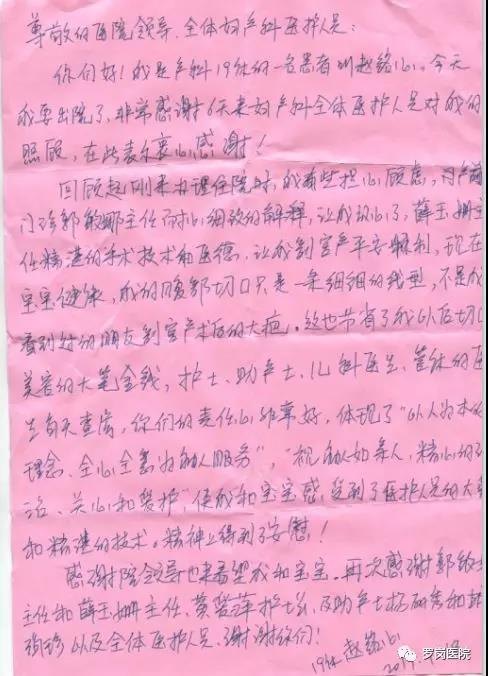 尊敬的医院领导、全体妇产科医护人员:
你们好!我是产科19床的一名患者叫赵铭心。今天
我要出院了,非常感谢6天来妇产科全体医护人员对我的
照顾,在此表示衷心感谢!
回顾起刚来办理住院时,我有些担心顾虑,
门诊郭敏娜主任耐心细致的解释,让我放心了,薛玉姗主
任精湛的手术技术和医德,让我剖宫产平安顺利,现在
宝宝健康,我的腹部切口只是一条细细的线型,不是我
看到过的朋友剖宫产术后的大疤。这也节省了我以后切口
美容的大笔金钱,护士、助产士、儿科医生、管床的医
生每天查房,你们的责任心非常好,体现了“以人为本的
理念、全心全意为病人服务”,“视病人如亲人,精心的治
治、关心和爱护”,使我和宝宝感受到了医护人员的大爱
和精湛的技术,精神上得到了安慰!
感谢院领导也来看望我和宝宝。再次感谢郭敏娜
主任和薛玉姗主任、黄碧萍护士长、及助产士
以及全体医护人员、谢谢你们!
19床 赵铭心
罗岗医院